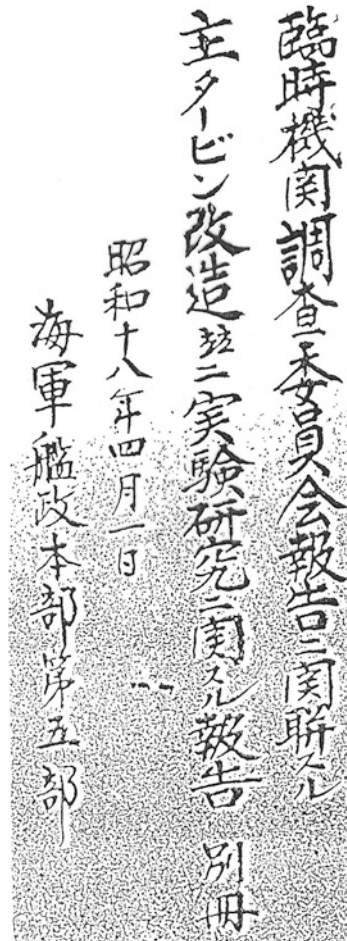 臨時機関調査委員会報告ニ関聯スル
主タービン改造並ニ実験研究ニ関スル報告 別冊
昭和十八年四月一日
海軍艦政本部第五部